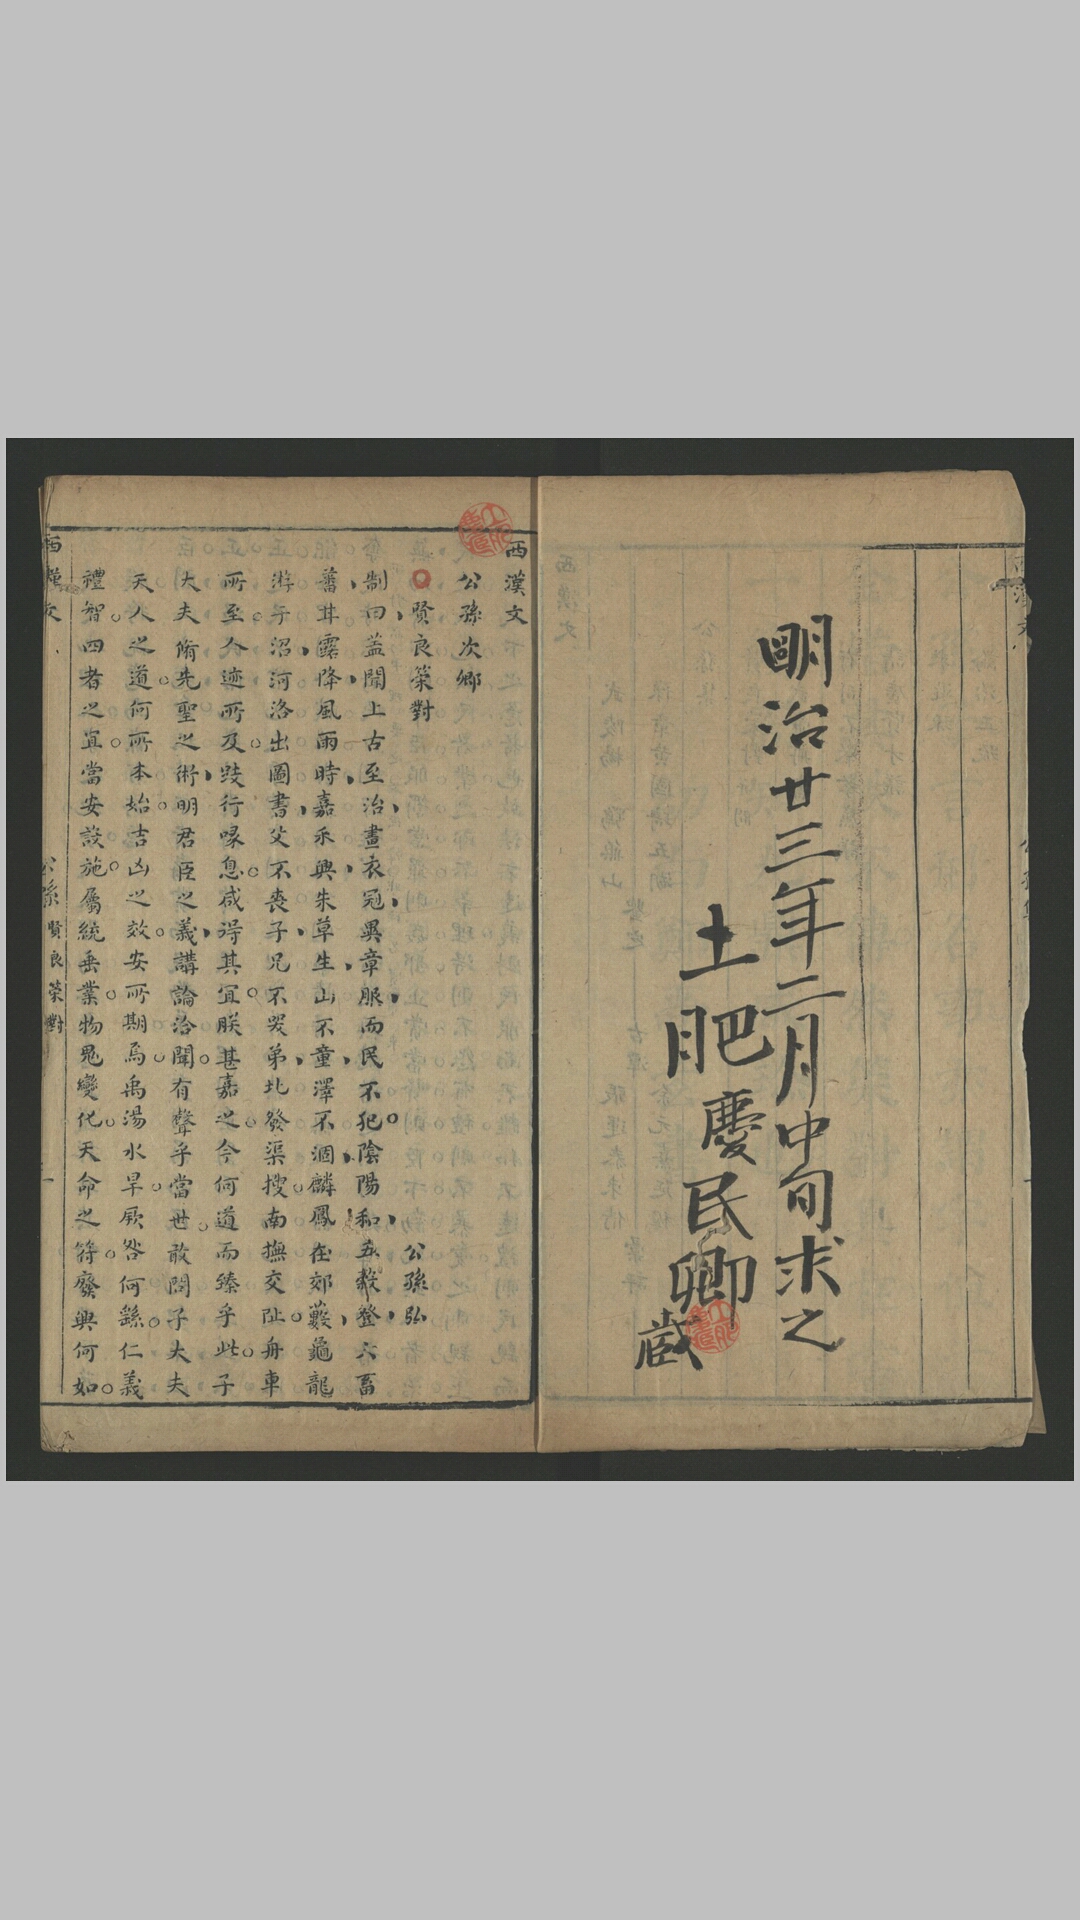 明治廿三年二月中旬求之
土肥慶民卿
蔵
西漢文
公孫次卿
賢良策對
公孫弘
制曰蓋聞上古至治畫衣冠異章服而民不犯陰陽和五穀登六畜
蕃甘露降風雨時嘉禾興朱草生山不童澤不涸麟鳳在郊藪龜龍
游于沼河洛出圖書父不喪子兄不哭弟北發渠搜南撫交阯舟車
所至人迹所及跂行喙息咸得其宜朕甚嘉之今何道而臻乎此子
大夫脩先聖之術明君臣之義講論洽聞有聲乎當世敢問子大夫
天人之道何所本始吉凶之效安所期焉禹湯水旱厥咎何繇仁義
禮智四者之宜當安設施屬統垂業物鬼變化天命之符廢興何如
西漢文
公孫
賢良策對